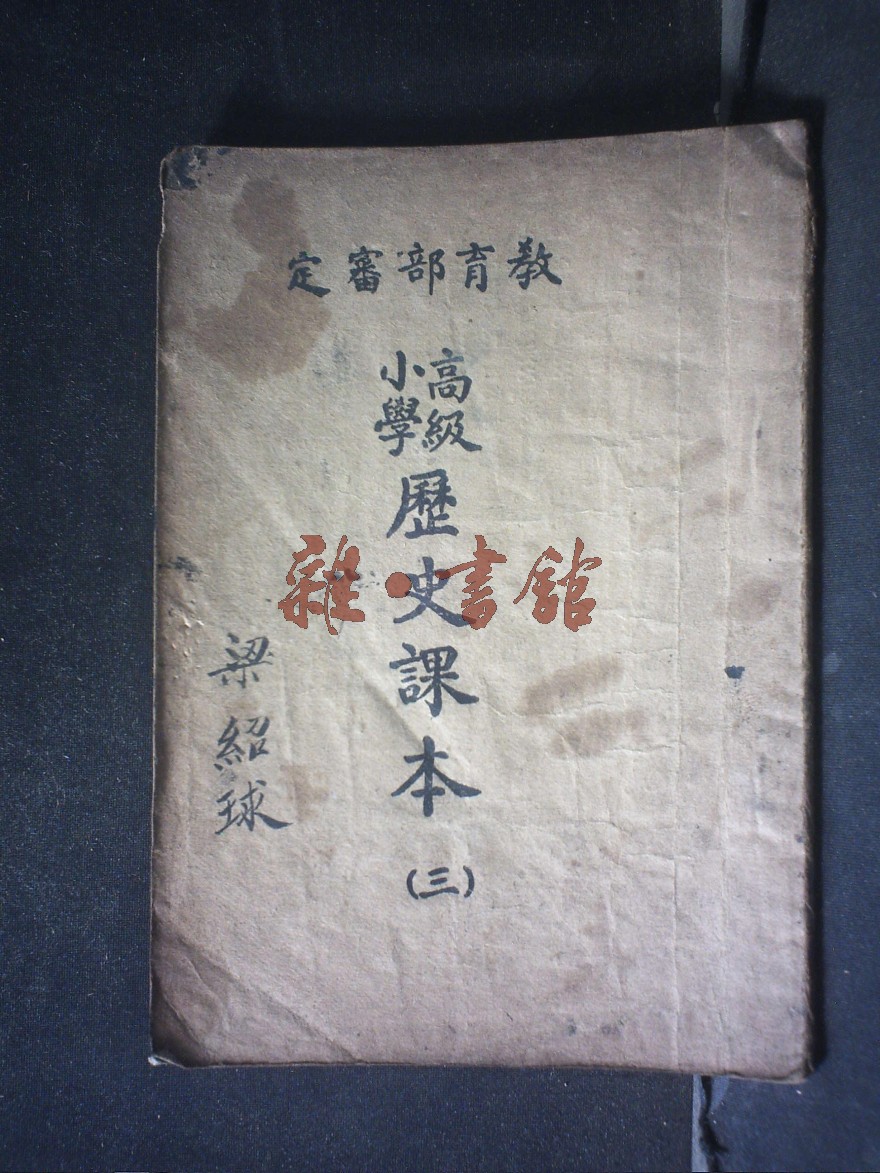 教育部審定
高級
小學
歷史課本
(三)
梁紹球
雜·書館